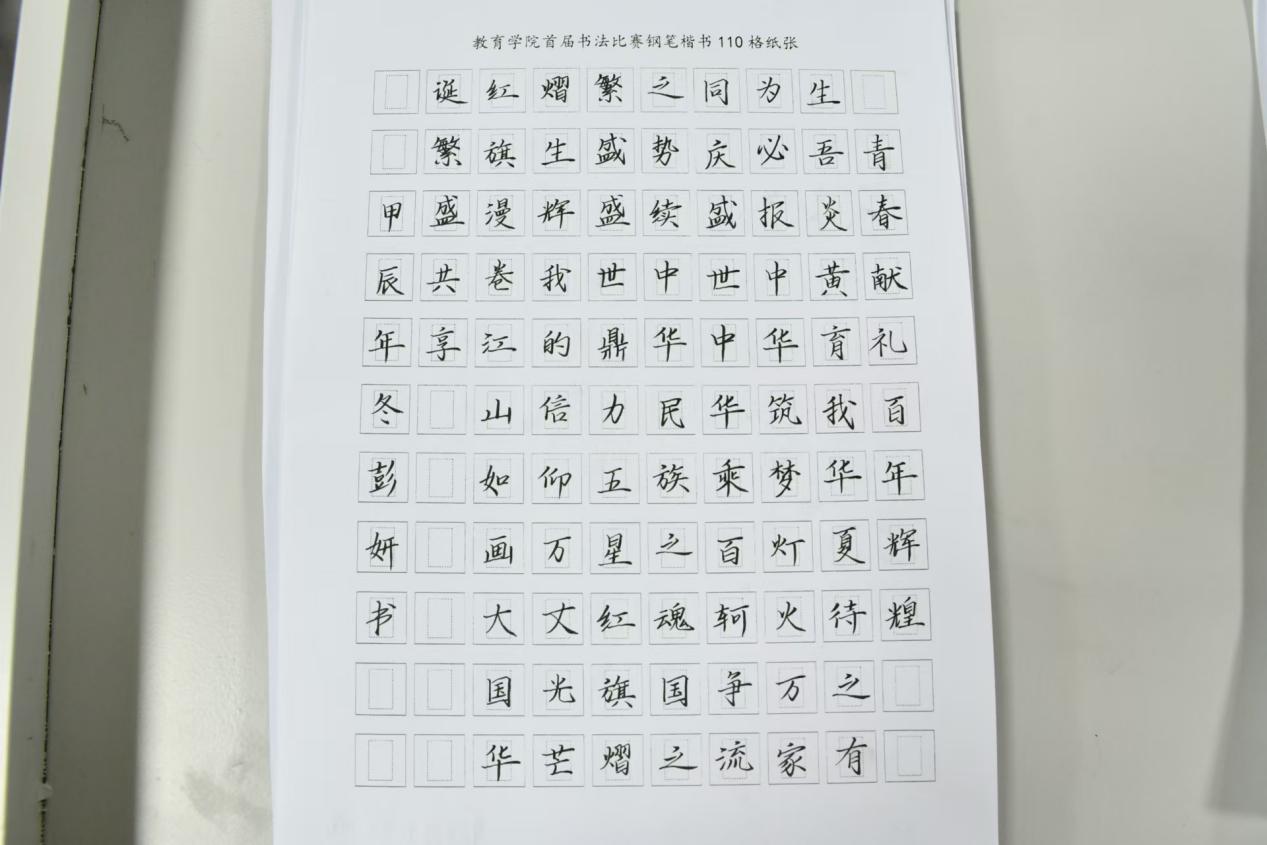 教育学院首届书法比赛钢笔楷书110格纸张
青春献礼百年辉煌
生吾炎黄育我华夏待之有
为必报中华筑梦灯火万家
同庆盛世中华乘百轲争流
之势续中华民族之魂国之
繁盛盛世鼎力五星红旗熠
熠生辉我的信仰万丈光芒
红旗漫卷江山如画大国华
诞繁盛共享
甲辰年冬彭妍书